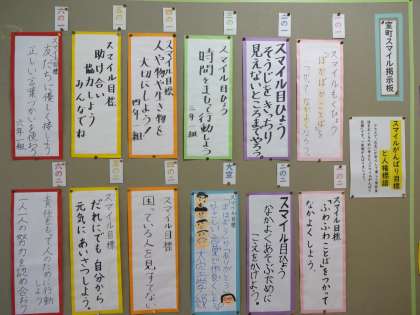 室町スマイル掲示板
スマイルがんばり目標
と人権標語
一の一
スマイルもくひょう
二の一
スマイル目ひょう
そうじをきっちり
見えないところまでふこう。
三の一
スマイル目ひょう
時間をまもって行動しよう
三年一組
四の一
スマイル目標
人や物や生き物を
大切にしよう!
四年一組
スマイル目標
助け合い
協力しよう
みんなでね
六の一
スマイル目標
友だちに優しく接しよう
正しい言葉づかいを使おう
六年一組
一の二
スマイル目ひょう
“ふわふわことば”をつかって
なかよくしよう。
二の二
スマイル目ひょう
なかよくあそぶために
こえをかけよう。
大空
スマイル目標
困っている人を見すてない
スマイル目標
だれにでも自分から
元気にあいさつしよう。
六の二
スマイル目標
責任をもって人のために行動
しよう
一人一人の努力を認め合おう